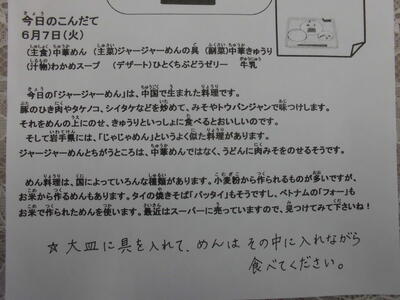 今日のこんだて
6月7日(火)
(主食)中華めん (主菜)ジャージャーめんの具 (副菜)中華きゅうり
(汁物)わかめスープ (デザート)ひとくちぶどうゼリー 牛乳
今日の「ジャージャーめん」は、中国で生まれた料理です。
豚のひき肉やタケノコ、シイタケなどを炒めて、みそやトウバンジャンで味つけします。
それをめんの上にのせ、きゅうりといっしょに食べるとおいしいのです。
そして岩手県には、「じゃじゃめん」というよく似た料理があります。
ジャージャーめんとちがうところは、中華めんではなく、うどんに肉みそをのせるそうです。
めん料理は、国によっていろんな種類があります。小麦粉から作られるものが多いですが、
お米から作るめんもあります。タイの焼きそば「パッタイ」もそうですし、ベトナムの「フォー」も
お米で作られためんを使います。最近はスーパーに売っていますので、見つけてみて下さいね!
☆ 大皿に具を入れて、めんは その中に入れながら
食べてください。